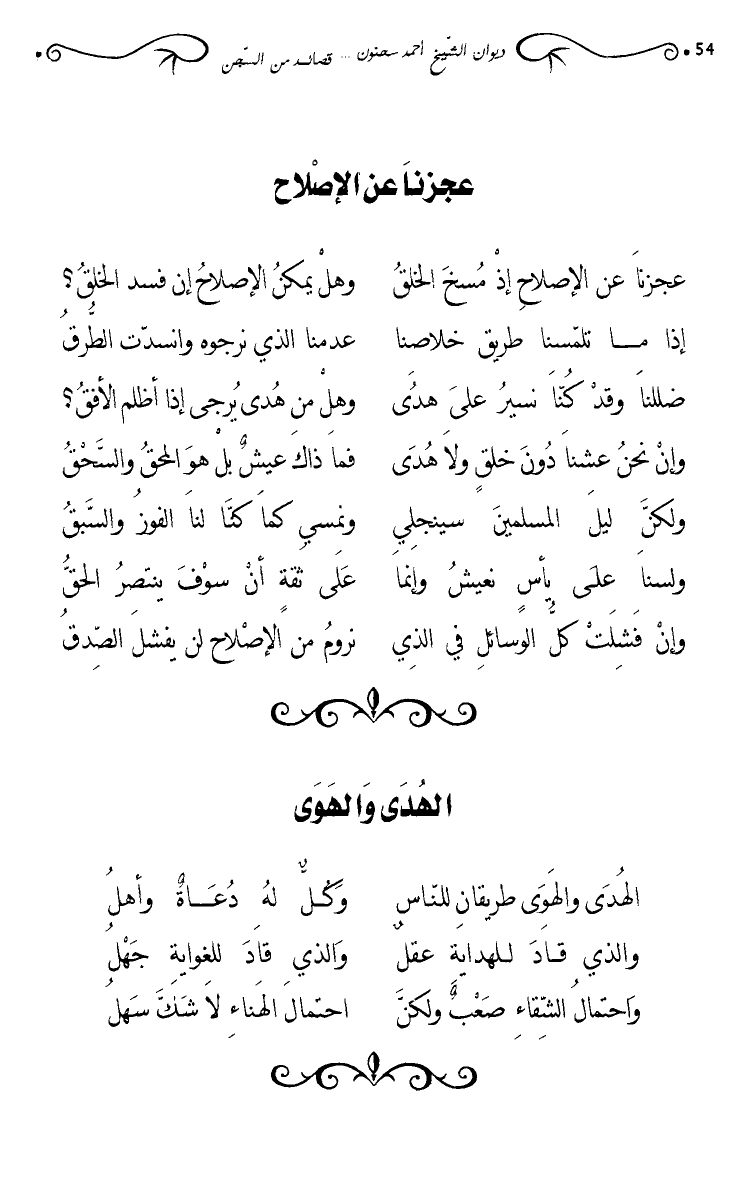 54 ديوان الشّيخ أحمد سحنون ... قصائد من السّجن
عجزنَا عن الإصْلاح
عجزنَا عن الإصلاحِ إذْ مُسخَ الخلقُ وهلْ يمكنُ الإصلاحُ إن فسد الخلقُ؟
إذا مــا تلمّسنا طريق خلاصنا عدمنا الذي نرجوه وانسدّت الطُّرقُ
ضللنَا وقدْ كُنَّا نسيرُ علىَ هدُى وهلْ من هُدى يُرجى إذا أظلم الأفقُ؟
وإنْ نحنُ عشنَا دُونَ خلقٍ ولاَ هُدَى فمَا ذاكَ عيشٌ بلْ هوَ المحقُ والسَّحْقُ
ولكنَّ ليلَ المسلمينَ سينجلِي ونمسِي كمَا كنَّا لنَا الفوزُ والسَّبقُ
ولسنَا علَى يأسٍ نعيشُ وإنمَّا عَلَى ثقةٍ أنْ سوْفَ ينتصرُ الحقُّ
وإنْ فَشِلَتْ كلُّ الوسائلِ في الذِي نرومُ من الإصْلاح لن يفشلَ الصّدقُ
الهُدَى وَالهَوَى
الهُدَى والهَوَى طريقَانِ للنّاسِ وَكُـلٌّ لهُ دُعَــاةٌ وأهلُ
والذي قـادَ للهدايةِ عقلٌ وَالذي قادَ للغوايةِ جَهْلُ
وَاحتمالُ الشّقاءِ صَعْبٌ ولكنَّ احتمالَ الهَناءِ لاَ شَكَّ سَهلُ